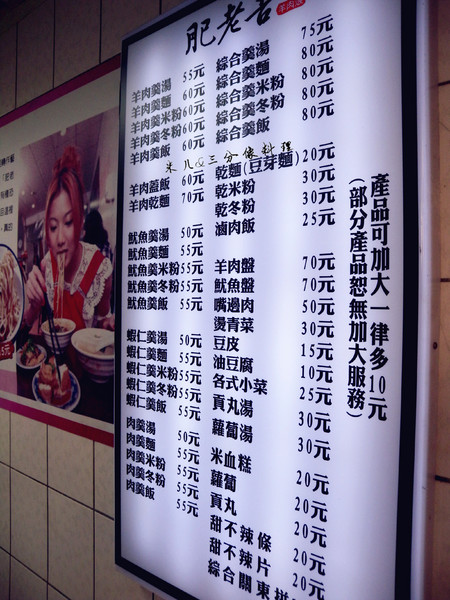 肥老
羊肉羹湯 55元
羊肉羹麵 60元
羊肉羹米粉 60元
羊肉羹冬粉 60元
羊肉羹飯 60元
羊肉燴飯 60元
羊肉乾麵 70元
魷魚羹湯 50元
魷魚羹麵 55元
魷魚羹米粉 55元
魷魚羹冬粉 55元
魷魚羹飯 55元
蝦仁羹湯 50元
蝦仁羹麵 55元
蝦仁羹米粉 55元
蝦仁羹冬粉 55元
蝦仁羹飯 55元
肉羹湯 50元
肉羹麵 55元
肉羹米粉 55元
肉羹冬粉 55元
肉羹飯 55元
綜合羹湯 75元
綜合羹麵 80元
綜合羹米粉 80元
綜合羹冬粉 80元
綜合羹飯 80元
乾麵(豆芽麵) 20元
乾米粉 30元
乾冬粉 30元
滷肉飯 25元
羊肉盤 70元
魷魚盤 70元
嘴邊肉 50元
燙青菜 30元
豆皮 15元
油豆腐 10元
各式小菜 25元
貢丸湯 30元
蘿蔔湯 30元
米血糕 20元
蘿蔔 20元
貢丸 20元
甜不辣條 20元
甜不辣片 20元
綜合關東拼
產品可加大一律多10元
(部分產品恕無加大服務)